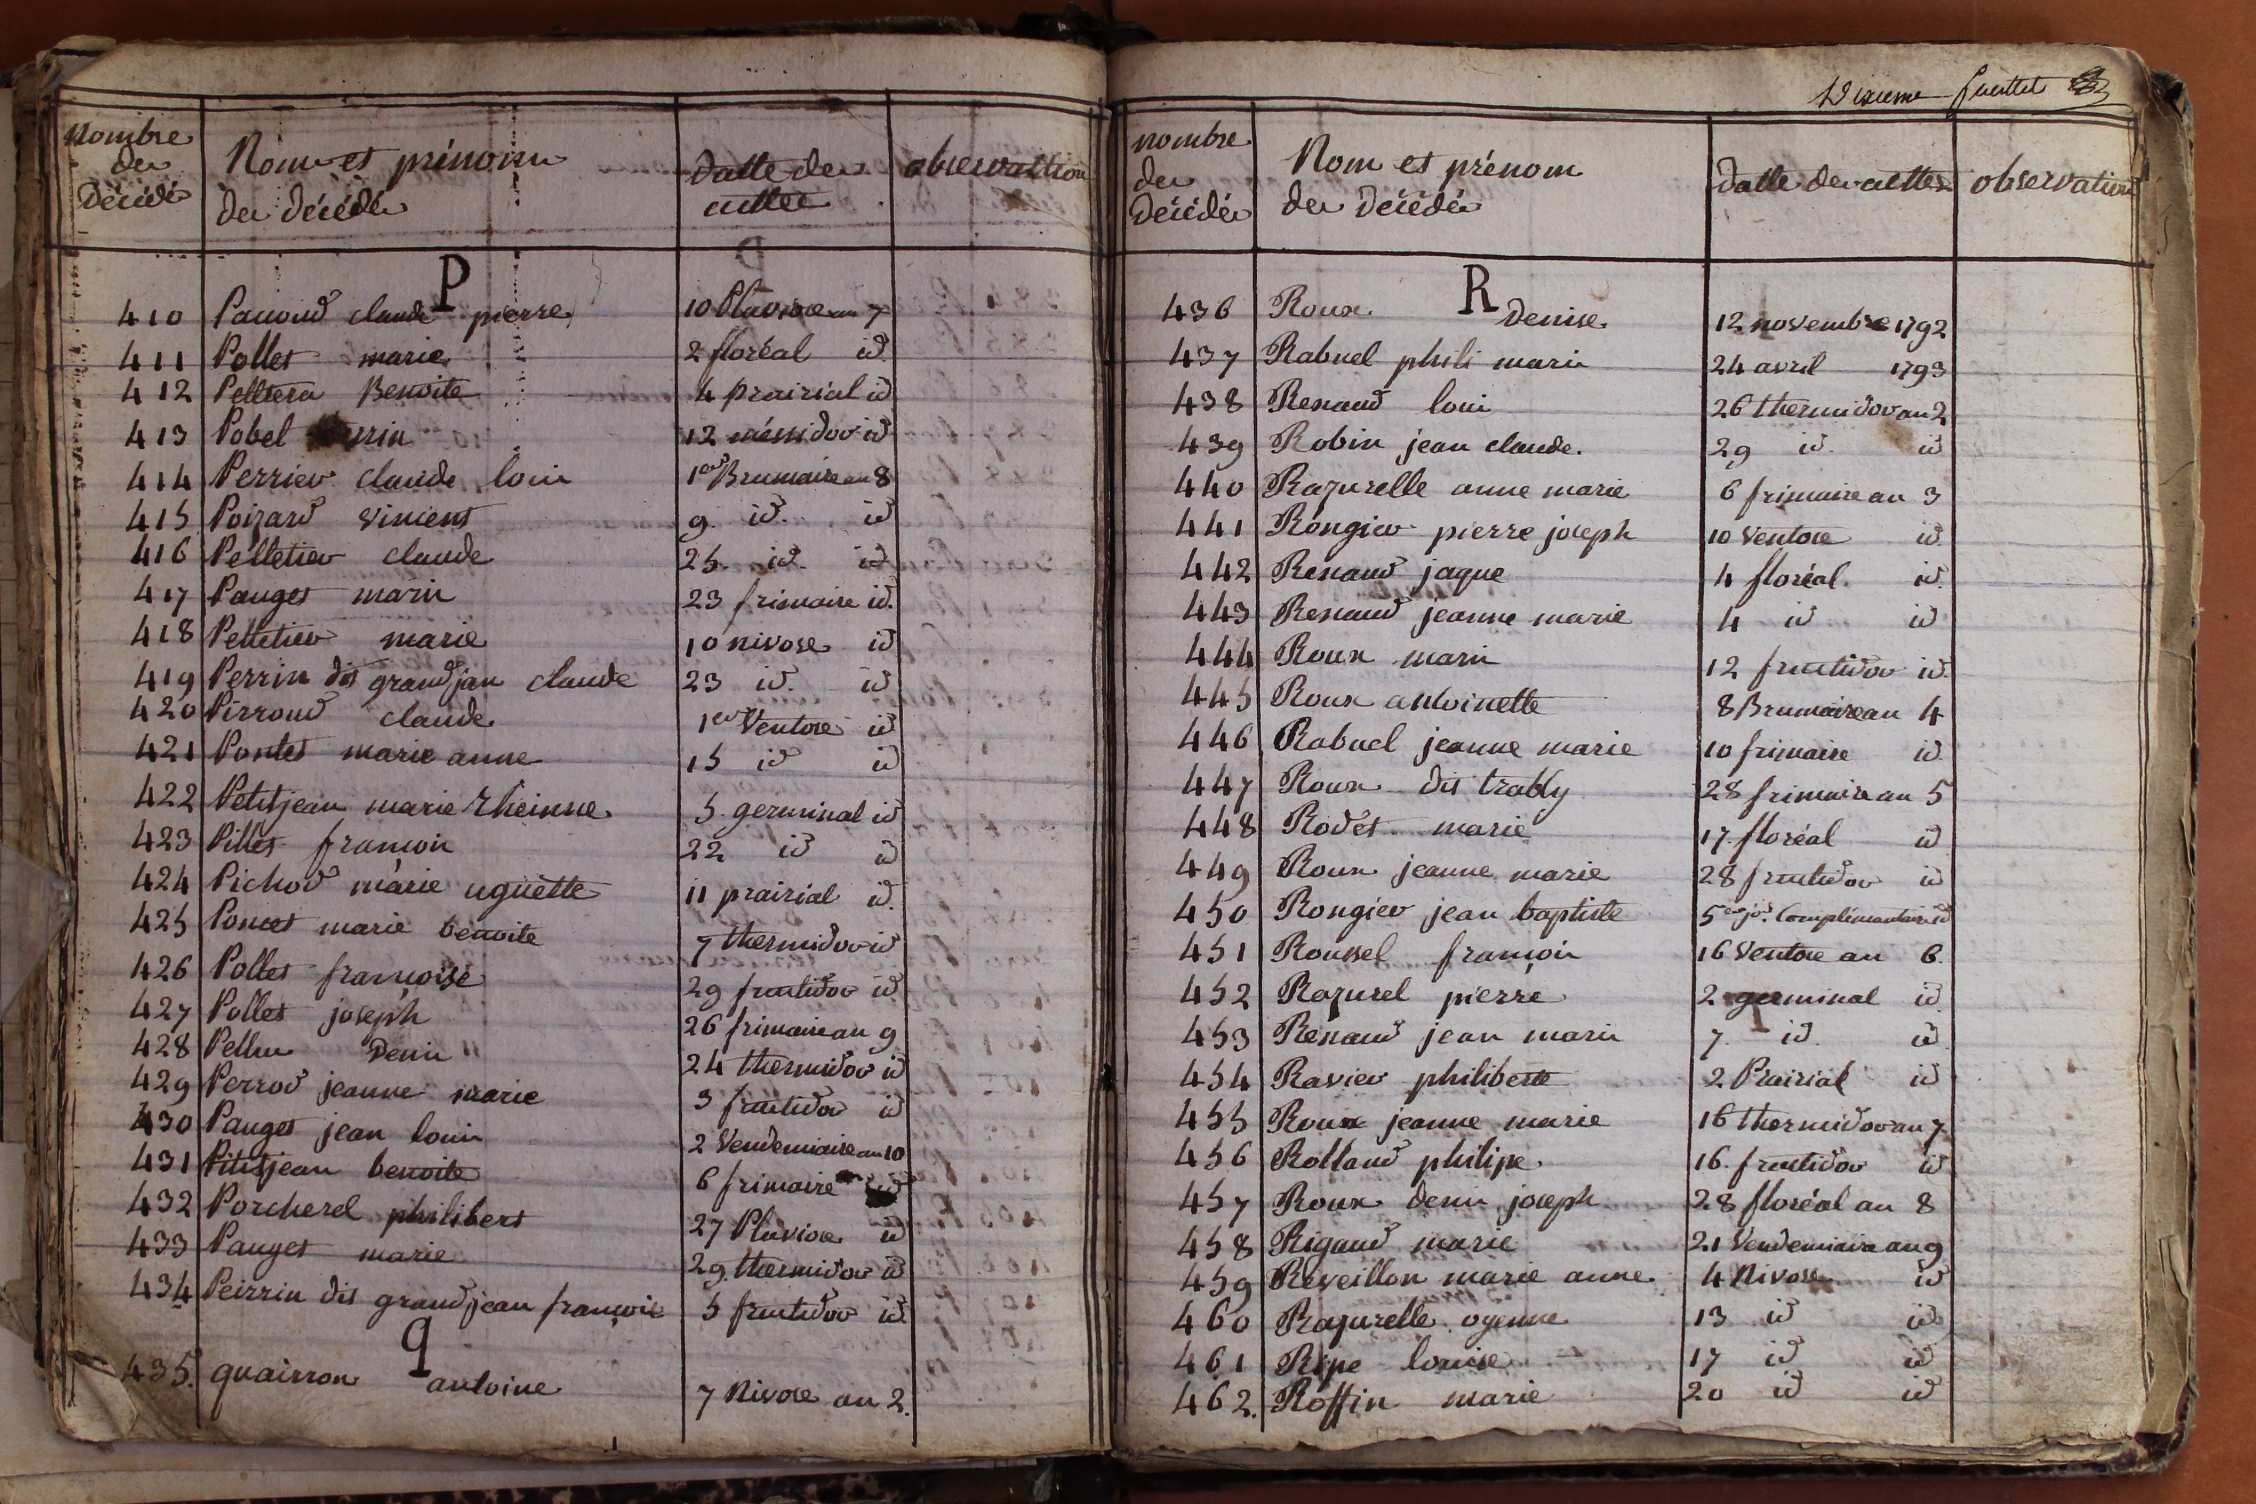 nombre
de
Décédé
Nom et prénom
de décédé
datte de
acttes
observattion
P
410 Pacoud claude pierre 10 Pluviose an 7
411 Pollet marie 2 floréal id
412 Benoite 4 prairial id
413 Pobel 12 méssidor id
414 Perrier claude loui 1er Brumaire an 8
415 Poizard vincent 9 id. id
416 Pélletier claude 25 id. id
417 Pauget marin 23 frimaire id.
418 Pelletier marie 10 nivose id
419 Perrin dit grandjan claude 23 id. id
420 Pirroud claude 1er Ventose id
421 Pontet marie anne 15 id id
422 Petitjean marie rheinne 5 germinal id
423 Pillet francoi 22 id id
424 Pichod marie uguette 11 prairial id.
425 Poncet marie benoite 7 thermidor id
426 Pollet francoise 29 fructidor id
427 Pollet joseph 26 frimaire an 9
428 Denis 24 thermidor id
429 Perrod jeanne marie 3 fructidor id
430 Pauget jean loui 2 Vendemiaire an 10
431 Pititjean benoite 6 frimaire id
432 Porcherel philibert 27 Pluviose id
433 Pauget marie 29 thermidor id
434 Peirrin dit grandjean françoix 5 fructidor id
q
435. quairron antoine 7 Nivose an 2.
fueillet
nombre
de
Décédé
Nom et prénom
de Décédé
datte de acttes
observation
R
436 Roux Denise 12 novembre 1792
437 Rabuel phili marie 24 avril 1793
438 Renaud loui 26 thermidor an 2
439 Robin jean claude. 29 id. id
440 Razurelle anne marie 6 frimaire an 3
441 Rongier pierre joseph 10 Ventose id
442 Renaud jaque 4 floréal. id.
443 Renaud jeanne marie 4 id id
444 Roux marie 12 fructidor id.
445 Roux antoinette 8 Brumaire an 4
446 Rabuel jeanne marie 10 frimaire id
447 Roux dit trably 28 frimaire an 5
448 Rodet marie 17 floréal id
449 Roux jeanne marie 28 fructidor id
450 Rongier jean baptiste 5 Complémantaire id
451 Roussel francoi 16 Ventose an 6
452 Razurel pierre 2 germinal id
453 Renaud jean marie 7 id. id
454 Ravier philiberte 2 Prairial id
455 Roux jeanne marie 16 thermidor an 7
456 Rolland philipe 16 fructidor id
457 Roux deni joseph 28 floréal an 8
458 Rigaud marie 21 Vendemiaire an 9
459 Reveillon marie anne 4 Nivose id
460 Razurelle oyenne 13 id id
461 Ripe louise 17 id id
462. Roffin marie 20 id id